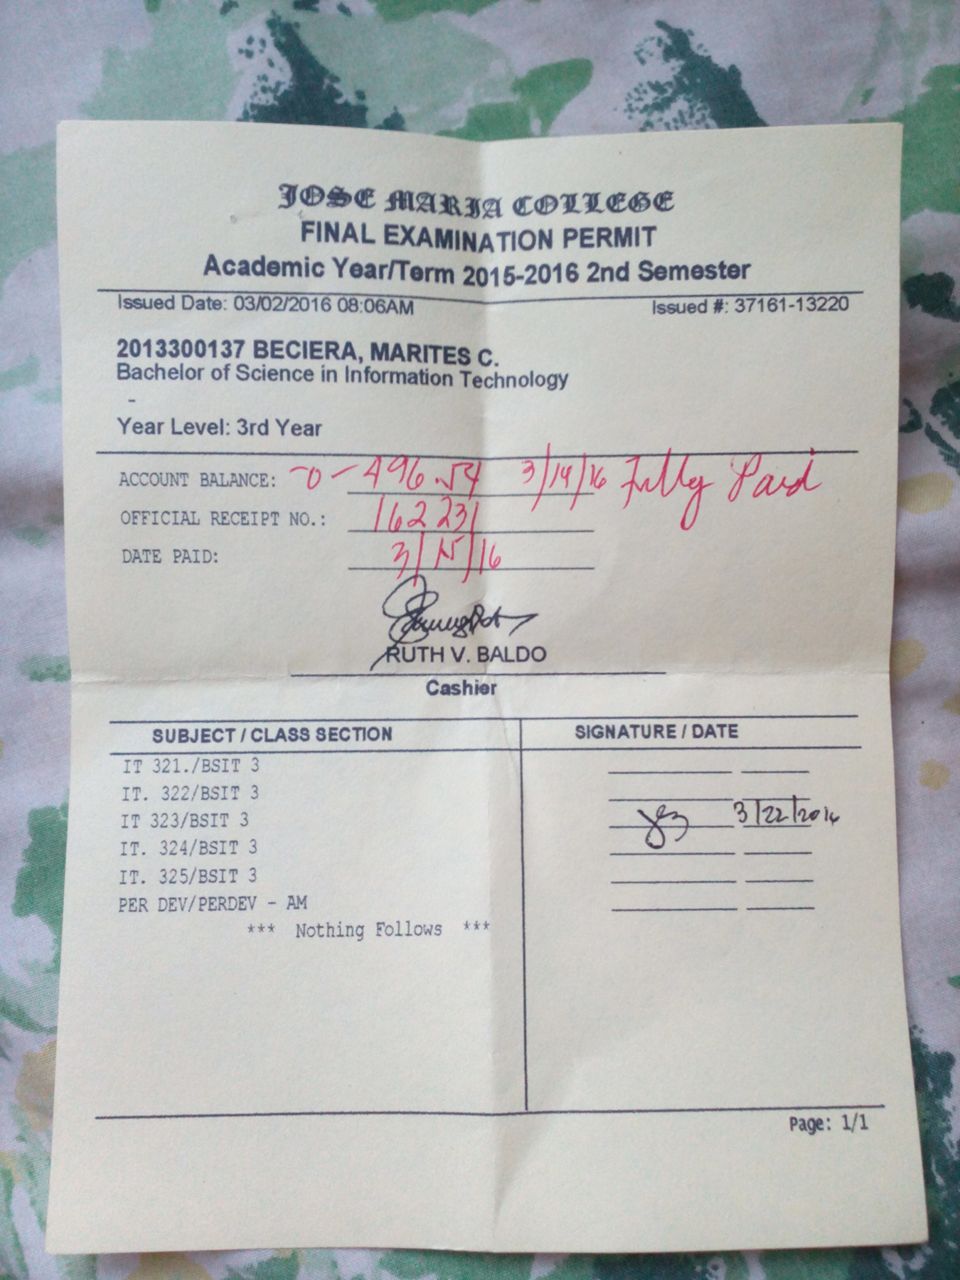 JOSE MARIA COLLEGE
FINAL EXAMINATION PERMIT
Academic Year/Term 2015-2016 2nd Semester
Issued Date: 03/02/2016 08:06AM Issued #: 37161-13220
2013300137 BECIERA, MARITES C.
Bachelor of Science in Information Technology
-
Year Level: 3rd Year
ACCOUNT BALANCE: -0- 496.54 3/14/16 Fully Paid
OFFICIAL RECEIPT NO.: 162231
DATE PAID: 3/15/16
RUTH V. BALDO
Cashier
SUBJECT / CLASS SECTION SIGNATURE / DATE
IT 321./BSIT 3
IT. 322/BSIT 3
IT 323/BSIT 3 3/22/2016
IT. 324/BSIT 3
IT. 325/BSIT 3
PER DEV/PERDEV - AM
*** Nothing Follows ***
Page: 1/1